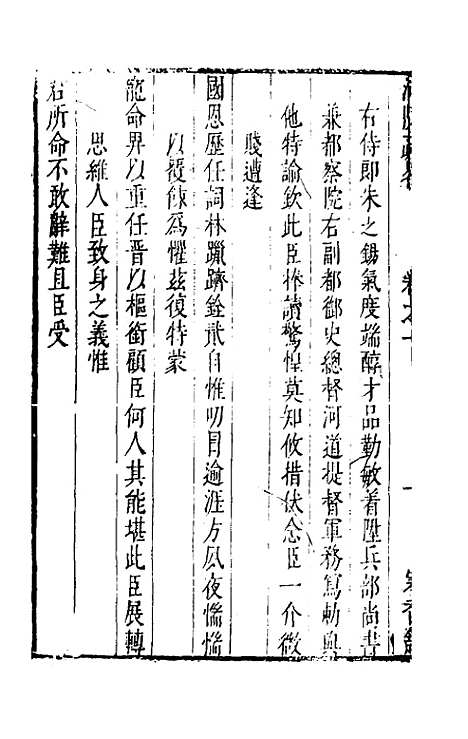 卷之十
一
右侍郎朱之錫氣度端醇才品勤敏着陞兵部尚書
兼都察院右副都御史總督河道提督軍務寫勅與
他特諭欽此臣捧讀驚惶莫知攸措伏念臣一介微
賤遭逢
國恩歷任詞林躐躋銓貳自惟叨冒逾涯方夙夜惴惴
以覆餗爲懼茲復特蒙
寵命畀以重任晋以樞銜顧臣何人其能堪此臣展轉
思維人臣致身之義惟
君所命不敢辭難且臣受